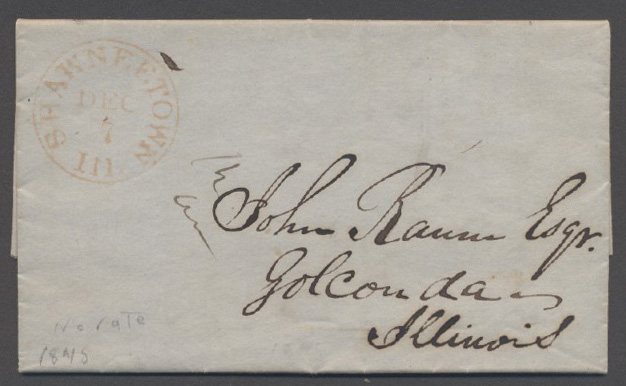 SHAWNEETOWN
DEC
7
Ill
John Raum Esqr.
Golconda
Illinois
No rate
1845